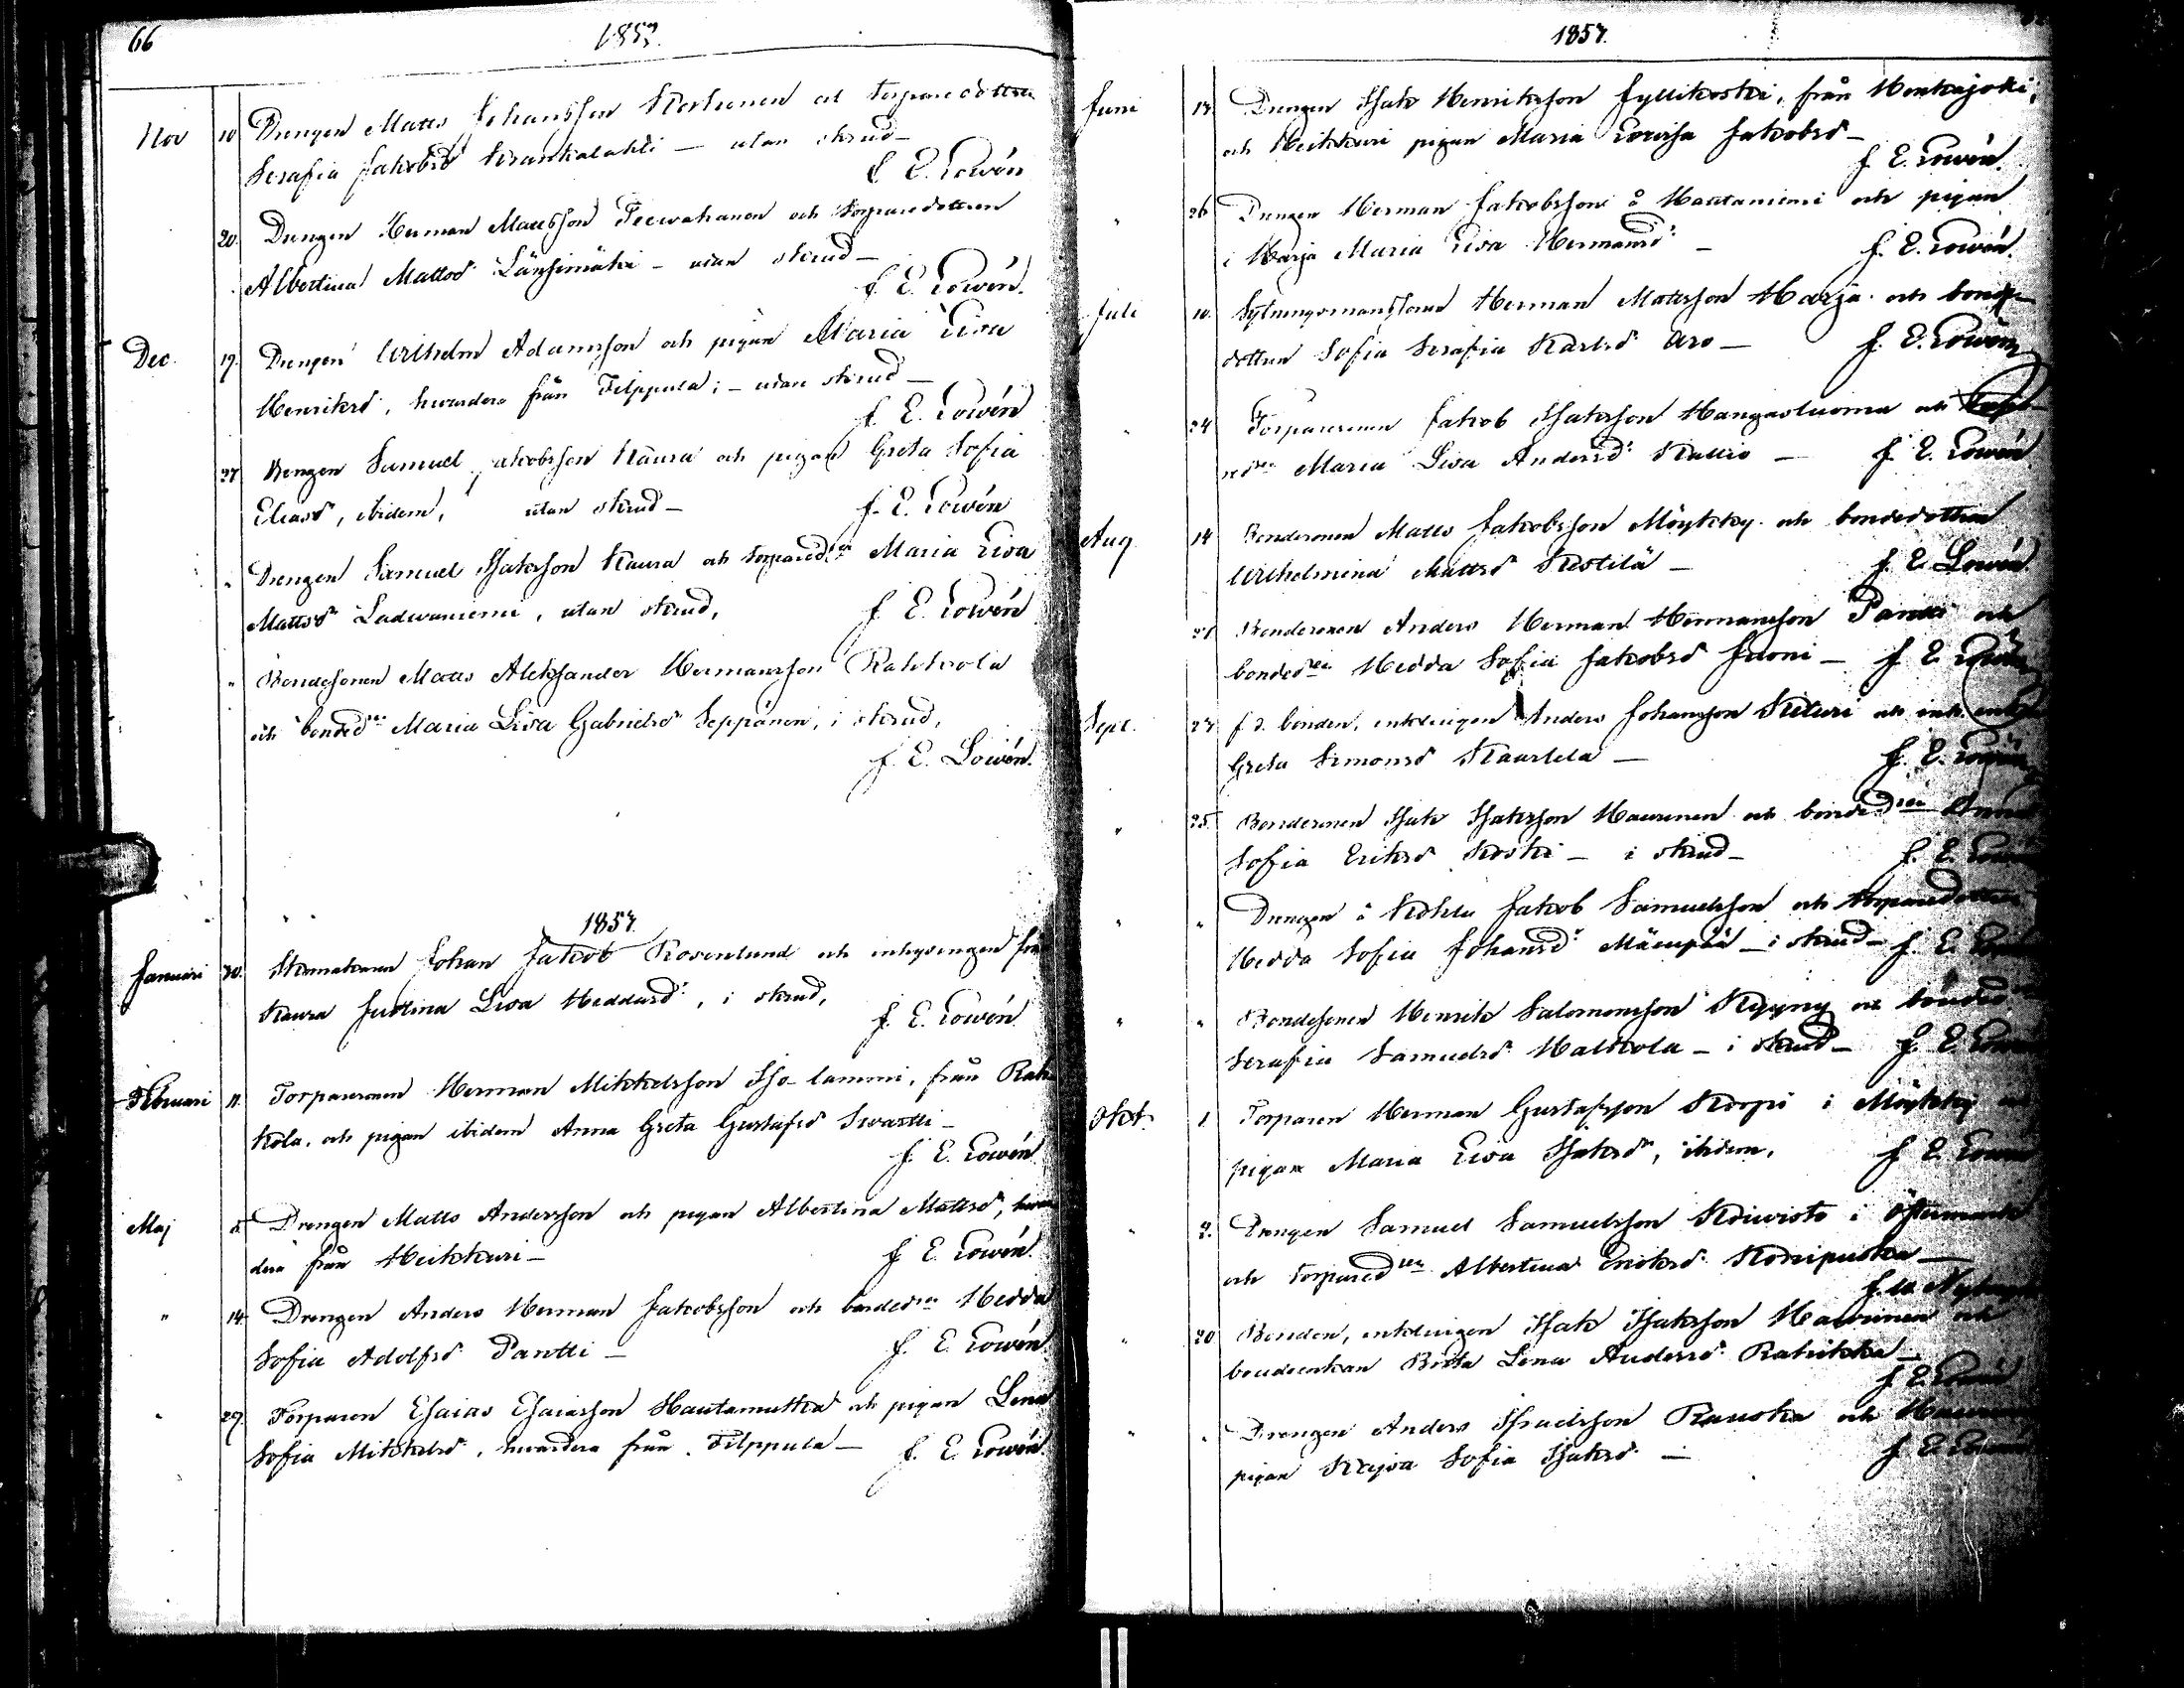 66
1857.
Nov 10 Drengen Matts Johansson Korhonen och torparedottren
Serafia Jakobsd. Krankalahti — utan skrud —
J. E. Lowén
20. Drengen Herman Mattsson Teerahanen och torparedottren
Albertina Mattsd. Länsimäki — utan skrud —
J. E. Lowén.
Dec. 19. Drengen Wilhelm Adamsson och pigan Maria Lisa
Henriksd., hvardera från Filppula; — utan skrud —
J. E. Lowén
27 Drengen Samuel Jakobsson Kaura och pigan Greta Sofia
Eliasd., ibidem, utan skrud — J. E. Lowén
" Drengen Samuel Isaksson Kaura och torpared:en Maria Lisa
Mattsd. Ladvaniemi, utan skrud, J. E. Lowén
" Bondesonen Matts Aleksander Hermansson Rahkola
och bonded:en Maria Lisa Gabrielsd. Seppänen, i skrud,
J. E. Lowén.
1857.
Januari 30. Johan Jakob Rosenlund och inhysingen från
Kaura Justina Lisa Heddasd., i skrud,
J. E. Lowén.
Februari 11. Torparesonen Herman Mikkelsson Iso-lammi, från Rah-
kola, och pigan ibidem Anna Greta Gustafsd. Swartti —
J. E. Lowén
Maj 5. Drengen Matts Andersson och pigan Albertina Mattsd., hvar-
dera från Heikkuri — J. E. Lowén.
" 14. Drengen Anders Herman Jakobsson och bonded:en Hedda
Sofia Adolfsd. Pantti — J. E. Lowén.
" 29. Torparen Esaias Esaiasson Hautamutka och pigan Lena
Sofia Mikkelsd., hvardera från Filppula — J. E. Lowén.
1857.
Juni 13. Drengen Isak Henriksson Jyllikoski, från Honkajoki,
och Heikkuri pigan Maria Lovisa Jakobsd. —
J. E. Lowén.
" 26 Drengen Herman Jakobsson å Hautaniemi och pigan
i Harja Maria Lisa Hermansd. — J. E. Lowén.
Juli 10. Sytningsmanssonen Herman Matsson Harja och bonde-
dottren Sofia Serafia Karlsd. Aro — J. E. Lowén
" 24 Torparesonen Jakob Isaksson Hangasluoma och
Maria Lisa Andersd. Kallio — J. E. Lowén
Aug. 14 Bondesonen Matts Jakobsson Möykky och bondedottren
Wilhelmina Mattsd. Kestilä — J. E. Lowén
21 Bondesonen Anders Herman Hermansson Pantti och
bonded:en Hedda Sofia Jakobsd. Juoni — J. E. Lowén
Sept. 27 f. d. bonden, enklingen Anders Johansson Kituri och
Greta Simonsd. Kaarlela — J. E. Lowén
" 25. Bondesonen Isak Isaksson Haurunen och bonded:en
Sofia Eriksd. Koski — i skrud — J. E. Lowén
" " Drengen å Kohlu Jakob Samuelsson och torparedottren
Hedda Sofia Johansd. Mäenpää — i skrud — J. E. Lowén
" " Bondesonen Henrik Salomonsson Kyyny och bonded:en
Serafia Samuelsd. Halkola — i skrud — J. E. Lowén
Okt. 1. Torparen Herman Gustafsson Korpi i Möykky och
pigan Maria Lisa Isaksd., ibidem, J. E. Lowén
" 2. Drengen Samuel Samuelsson Koivisto i Östermark
och torpared:en Albertina Eriksd. Koskipuska —
" 20 Bonden, enklingen Isak Isaksson Haurunen och
bondeenkan Brita Lena Andersd. Rahikka —
J. E. Lowén
" " Drengen Anders Israelsson Rauska och
pigan Kajsa Sofia Isaksd. — J. E. Lowén